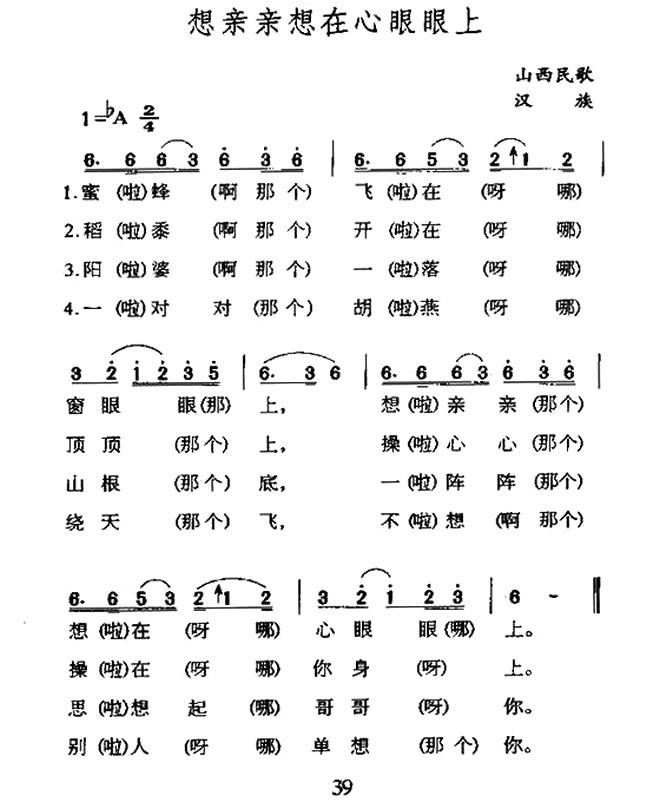 想亲亲想在心眼眼上
山西民歌
汉 族
1=♭A 2/4
6. 6 6 3 6 3 6 | 6. 6 5 3 2 ↑1 2 |
1.蜜 (啦)蜂 (啊 那 个) 飞 (啦)在 (呀 哪)
2.稻 (啦)黍 (啊 那 个) 开 (啦)在 (呀 哪)
3.阳 (啦)婆 (啊 那 个) 一 (啦)落 (呀 哪)
4.一 (啦)对 对 (那 个) 胡 (啦)燕 (呀 哪)
3 2 1 2 3 5 | 6. 3 6 | 6. 6 6 3 6 3 6 |
窗 眼 眼(那) 上, 想(啦)亲 亲(那个)
顶 顶 (那个) 上, 操(啦)心 心(那个)
山 根 (那个) 底, 一(啦)阵 阵(那个)
绕 天 (那个) 飞, 不(啦)想 (啊 那个)
6. 6 5 3 2 ↑1 2 | 3 2 1 2 3 | 6 - ‖
想 (啦)在 (呀 哪) 心 眼 眼(哪) 上。
操 (啦)在 (呀 哪) 你 身 (呀) 上。
思 (啦)想 起 (哪) 哥 哥 (呀) 你。
别 (啦)人 (呀 哪) 单 想 (那 个) 你。
39